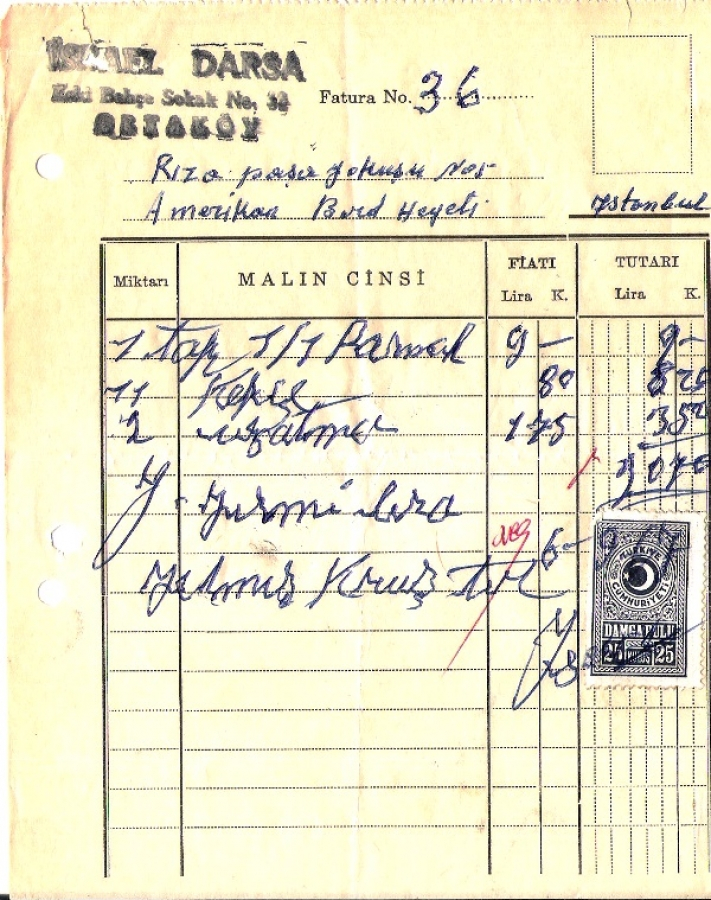 DARSA
Eski Bahçe Sokak No,
ORTAKÖY
Fatura No. 36
Rıza paşa yokuşu No 5
Amerikan Bord Heyeti
Istanbul
Miktarı MALIN CİNSİ FİATI TUTARI
Lira K. Lira K.
1 1/1 9 - 9-
11 80 8 20
2 uzatma 175 350
2070
Y. Yirmi lira
Yetmiş Kuruş tur 6-
TÜRKİYE
CUMHURİYETİ
DAMGA PULU
25 KURUŞ 25